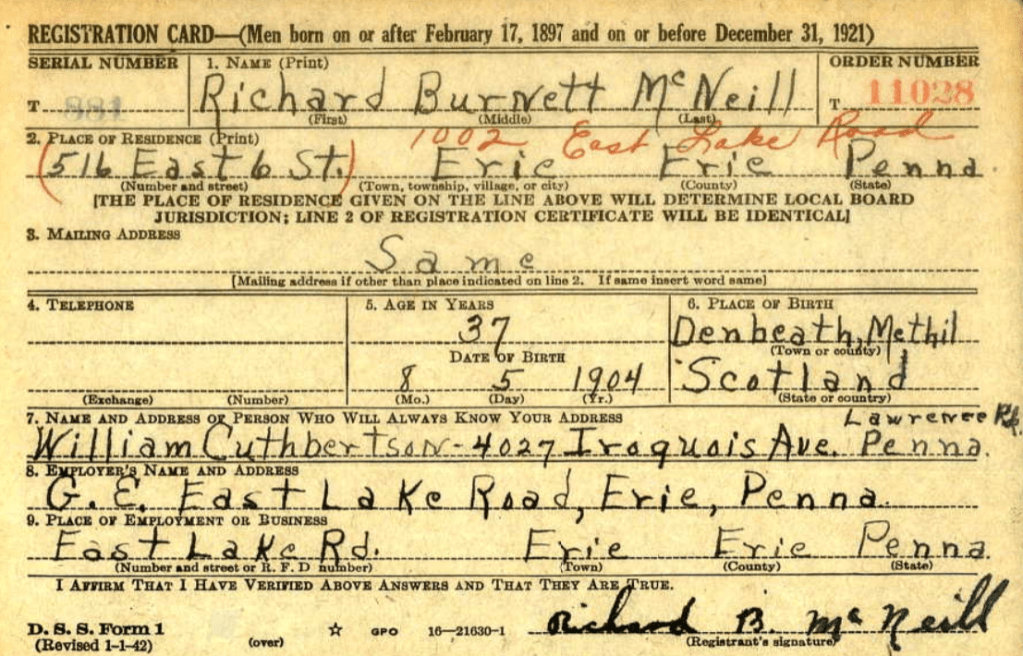 REGISTRATION CARD—(Men born on or after February 17, 1897 and on or before December 31, 1921)
SERIAL NUMBER 1. NAME (Print) ORDER NUMBER
T 881 Richard Burnett McNeill T 11028
(First) (Middle) (Last)
2. PLACE OF RESIDENCE (Print) 1002 East Lake Road
(516 East 6 St.) Erie Erie Penna
(Number and street) (Town, township, village, or city) (County) (State)
[THE PLACE OF RESIDENCE GIVEN ON THE LINE ABOVE WILL DETERMINE LOCAL BOARD
JURISDICTION; LINE 2 OF REGISTRATION CERTIFICATE WILL BE IDENTICAL]
3. MAILING ADDRESS
Same
[Mailing address if other than place indicated on line 2. If same insert word same]
4. TELEPHONE 5. AGE IN YEARS 6. PLACE OF BIRTH
37 Denbeath, Methil
DATE OF BIRTH (Town or county)
8 5 1904 Scotland
(Exchange) (Number) (Mo.) (Day) (Yr.) (State or country)
7. NAME AND ADDRESS OF PERSON WHO WILL ALWAYS KNOW YOUR ADDRESS Lawrence Pk.
William Cuthbertson - 4027 Iroquois Ave. Penna.
8. EMPLOYER'S NAME AND ADDRESS
G. E. East Lake Road, Erie, Penna.
9. PLACE OF EMPLOYMENT OR BUSINESS
East Lake Rd. Erie Erie Penna.
(Number and street or R. F. D number) (Town) (County) (State)
I AFFIRM THAT I HAVE VERIFIED ABOVE ANSWERS AND THAT THEY ARE TRUE.
D. S. S. Form 1 Richard B. McNeill
(Revised 1-1-42) (over) ☆ GPO 16—21630-1 (Registrant's signature)